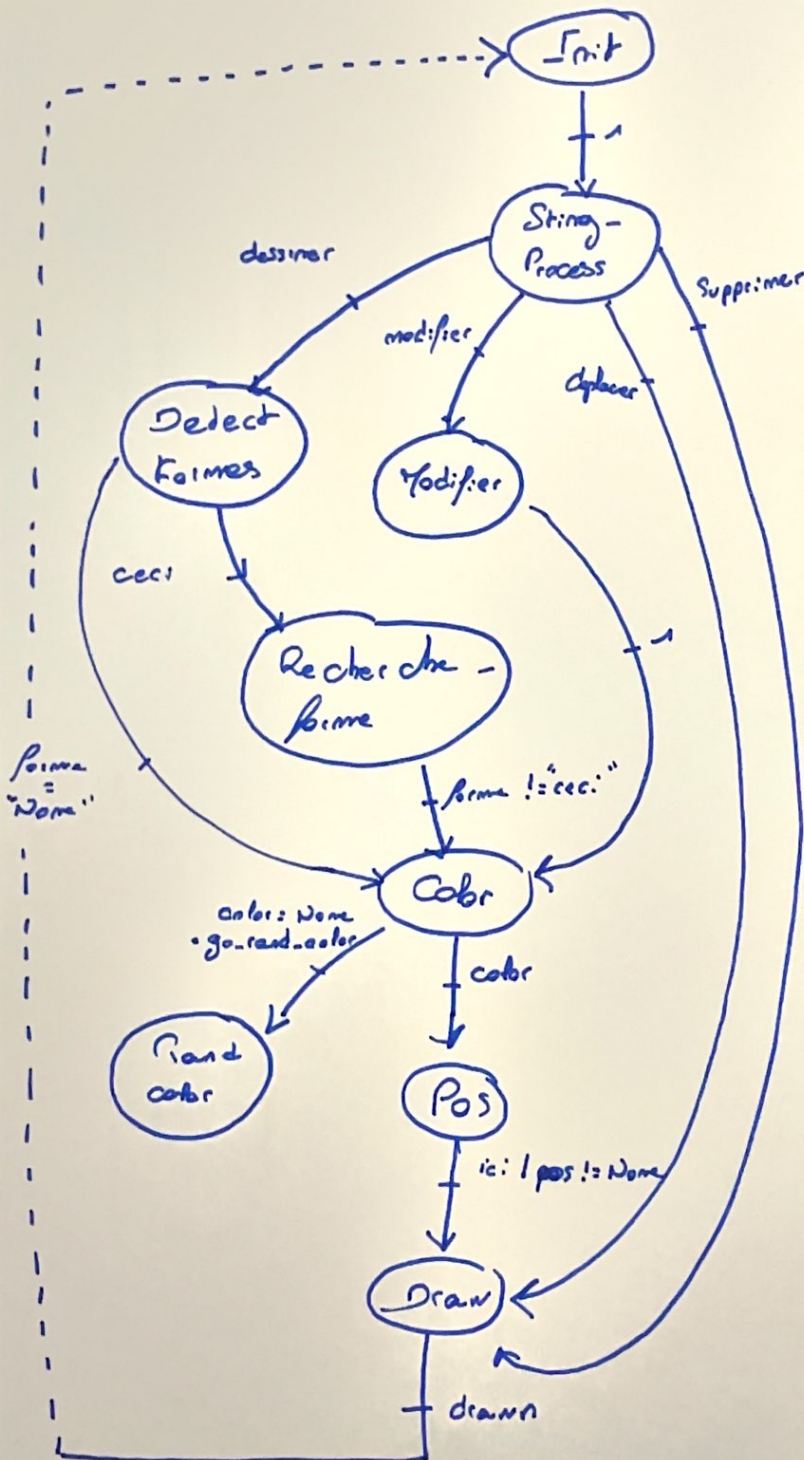 Init
1
String-
Process
dessiner
modifier
déplacer
Supprimer
Detect
Formes
Modifier
ceci
1
Recherche-
forme
forme
=
"None"
forme != "ceci"
Color
color = None
• go_rand_color
color
Rand
color
Pos
ici / pos != None
Draw
drawn